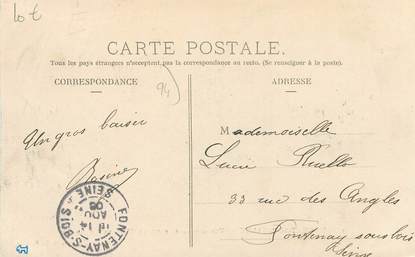 10 t
CARTE POSTALE.
Tous les pays étrangers n'acceptent pas la correspondance au recto. (Se renseigner à la poste).
CORRESPONDANCE
ADRESSE
94
un gros baiser
Mademoiselle
Lucie
33 rue des Angles
Fontenay sous bois
Seine
FONTENAY-S-BOIS
SEINE